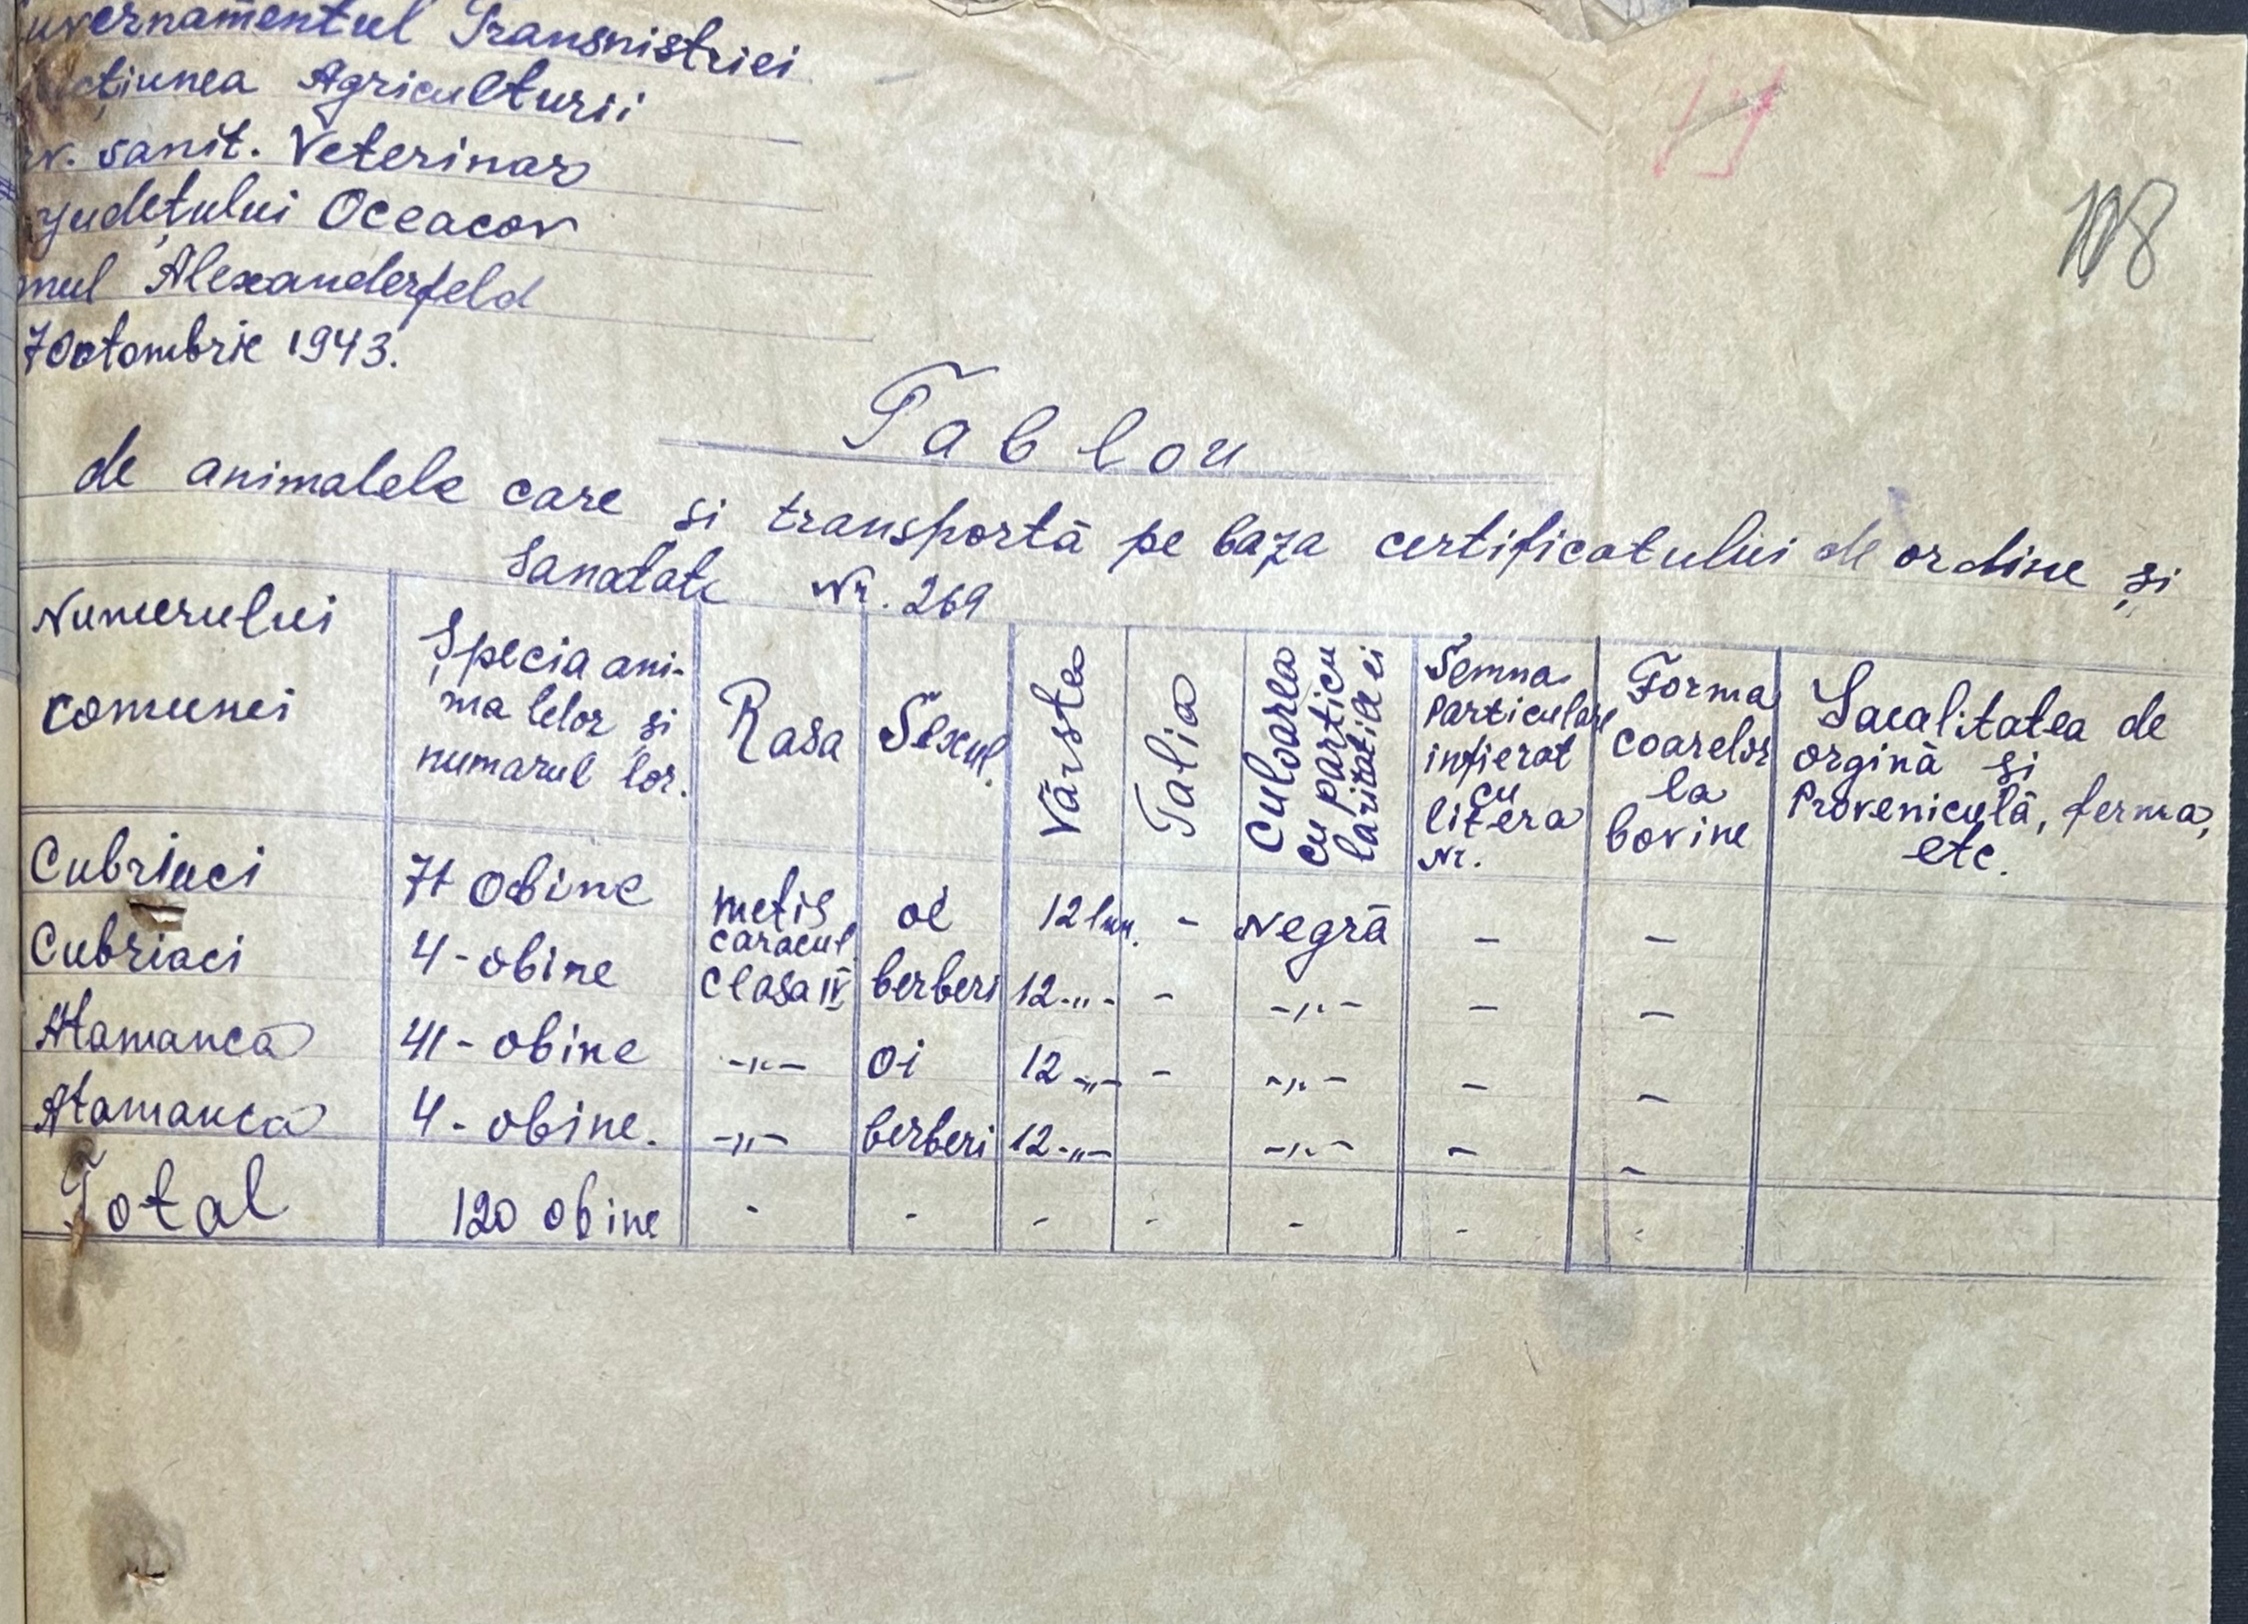 uvernamentul Transnistriei
cțiunea Agriculturii
rv. sanit. Veterinar
Județului Oceacov
nul Alexanderfeld
7 Octombrie 1943.
108
Tablou
de animalele care si transportă pe baza certificatului de ordine și
Sanatate Nr. 269
Numerului comunei
Specia animalelor și numarul lor.
Rasa
Sexul.
Vârsta
Talia
Culoarea cu particularitatile ei
Semna particulare infierat cu litera Nr.
Forma coarelor la bovine
Localitatea de orgină și Proveniculă, ferma, etc.
Cubriaci 71 obine metis caracul oi 12 lun. - Negră - -
Cubriaci 4 - obine clasa IV berberi 12 -„- - -„- - -
Atamanca 41 - obine -„- oi 12 -„- - -„- - -
Atamanca 4 - obine. -„- berberi 12 -„- -„- - -
Total 120 obine - - - - - - -